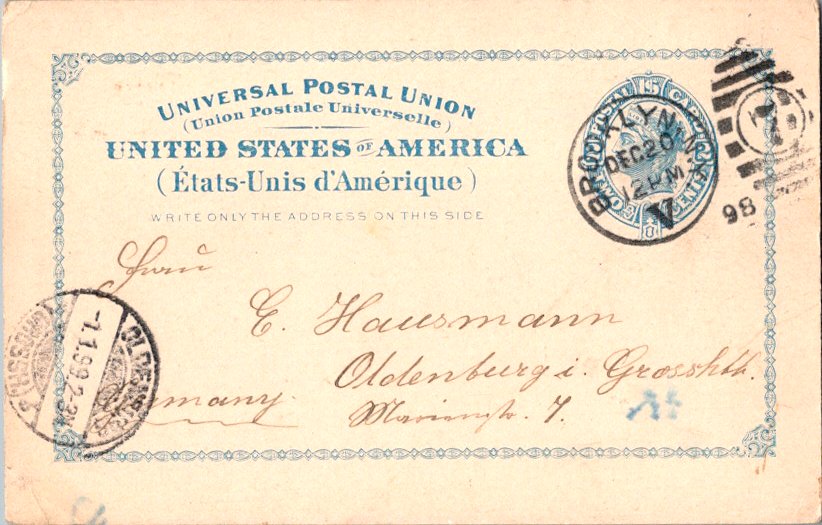 UNIVERSAL POSTAL UNION
(Union Postale Universelle)
UNITED STATES OF AMERICA
(États-Unis d'Amérique)
WRITE ONLY THE ADDRESS ON THIS SIDE
BROOKLYN, N.Y.
DEC 20
12 PM
V
98
Frau
E. Hausmann
Oldenburg i. Grosshth.
Marienstr. 7.
Germany.
OLDENBURG
1.1.99.2-3N